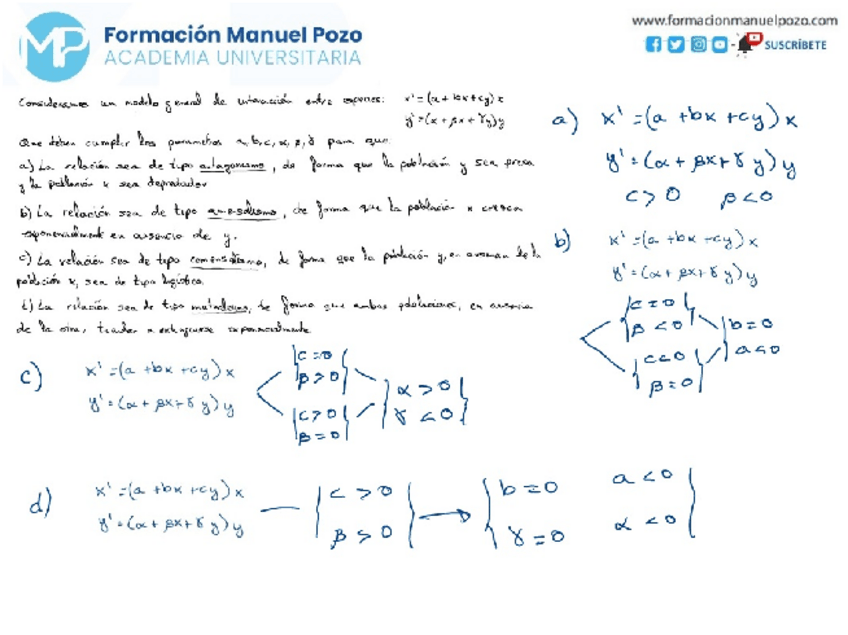 Formación Manuel Pozo
ACADEMIA UNIVERSITARIA
www.formacionmanuelpozo.com
SUSCRÍBETE
Consideramos un modelo general de interacción entre especies: x' = (a + bx + cy) x
y' = (α + βx + γy) y
Que deben cumplir los parámetros a, b, c, α, β, γ para que
a) La relación sea de tipo antagonismo, de forma que la población y sea presa
y la población x sea depredador
b) La relación sea de tipo amensalismo, de forma que la población x crezca
exponencialmente en ausencia de y.
c) La relación sea de tipo comensalismo, de forma que la población y, en ausencia de la
población x, sea de tipo logística.
d) La relación sea de tipo mutualismo, de forma que ambas poblaciones, en ausencia
de la otra, tiendan a extinguirse exponencialmente
a) x' = (a + bx + cy) x
y' = (α + βx + γy) y
c > 0 β < 0
b) x' = (a + bx + cy) x
y' = (α + βx + γy) y
c = 0
β < 0
c < 0
β = 0
b = 0
a < 0
c) x' = (a + bx + cy) x
y' = (α + βx + γy) y
c = 0
β > 0
c > 0
β = 0
α > 0
γ < 0
d) x' = (a + bx + cy) x
y' = (α + βx + γy) y
c > 0
β > 0
b = 0 a < 0
γ = 0 α < 0